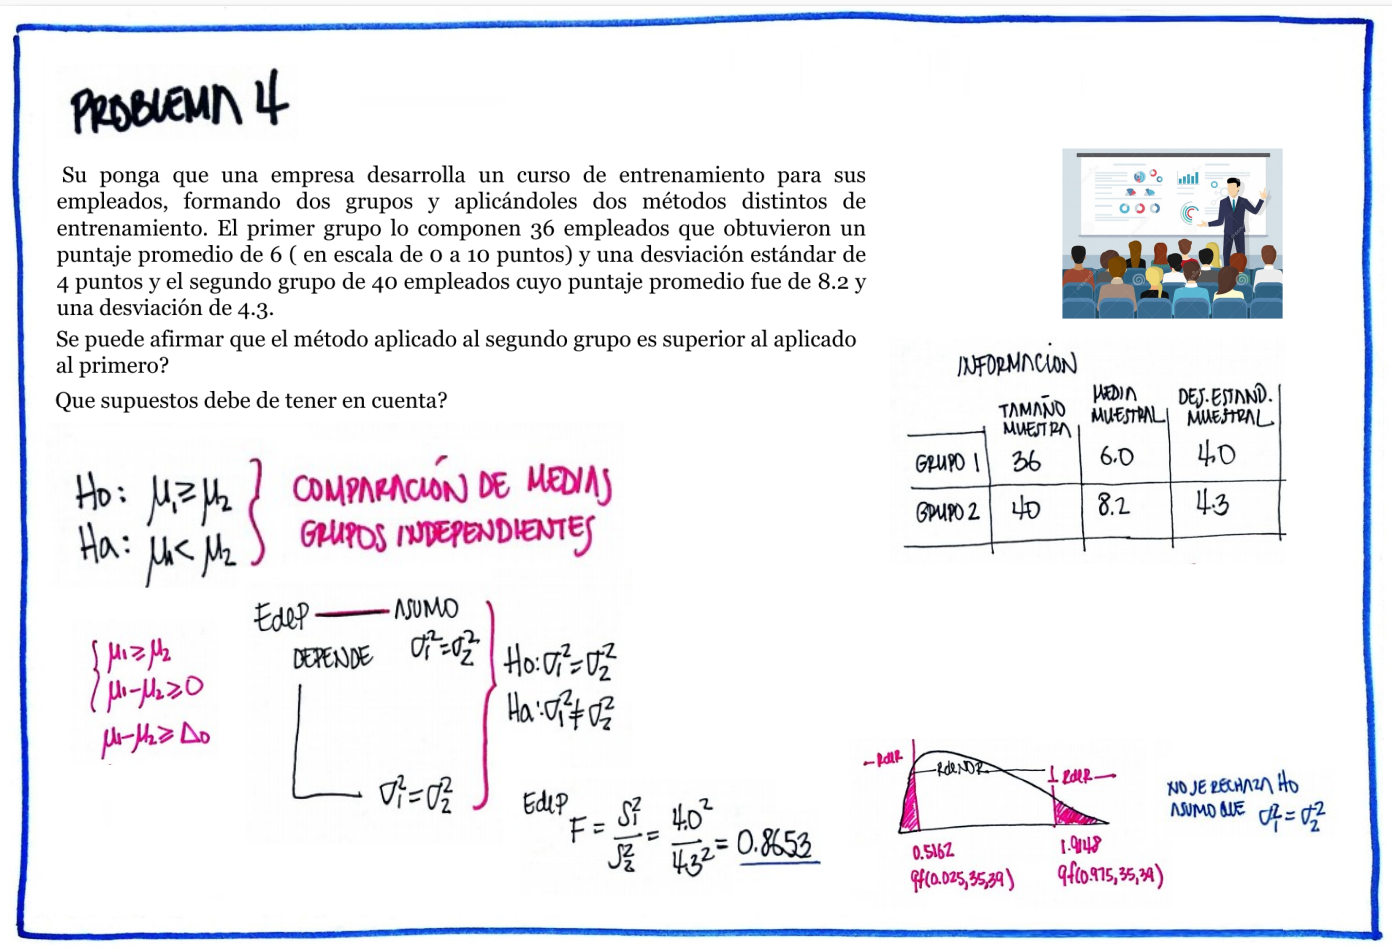 PROBLEMA 4
Su ponga que una empresa desarrolla un curso de entrenamiento para sus
empleados, formando dos grupos y aplicándoles dos métodos distintos de
entrenamiento. El primer grupo lo componen 36 empleados que obtuvieron un
puntaje promedio de 6 ( en escala de 0 a 10 puntos) y una desviación estándar de
4 puntos y el segundo grupo de 40 empleados cuyo puntaje promedio fue de 8.2 y
una desviación de 4.3.
Se puede afirmar que el método aplicado al segundo grupo es superior al aplicado
al primero?
Que supuestos debe de tener en cuenta?
INFORMACIÓN
TAMAÑO MUESTRA
MEDIA MUESTRAL
DES. ESTAND. MUESTRAL
GRUPO 1 36 6.0 4.0
GRUPO 2 40 8.2 4.3
Ho: μ₁ ≥ μ₂
Ha: μ₁ < μ₂
COMPARACIÓN DE MEDIAS
GRUPOS INDEPENDIENTES
μ₁ ≥ μ₂
μ₁-μ₂ ≥ 0
μ₁-μ₂ ≥ Δo
EdeP ASUMO
DEPENDE σ₁² = σ₂²
σ₁² = σ₂²
Ho: σ₁² = σ₂²
Ha: σ₁² ≠ σ₂²
EdeP
F = S₁²/S₂² = 4.0²/4.3² = 0.8653
RdeR
RdeNR
RdeR
0.5162
qf(0.025,35,39)
1.9148
qf(0.975,35,39)
NO SE RECHAZA Ho
ASUMO QUE σ₁² = σ₂²